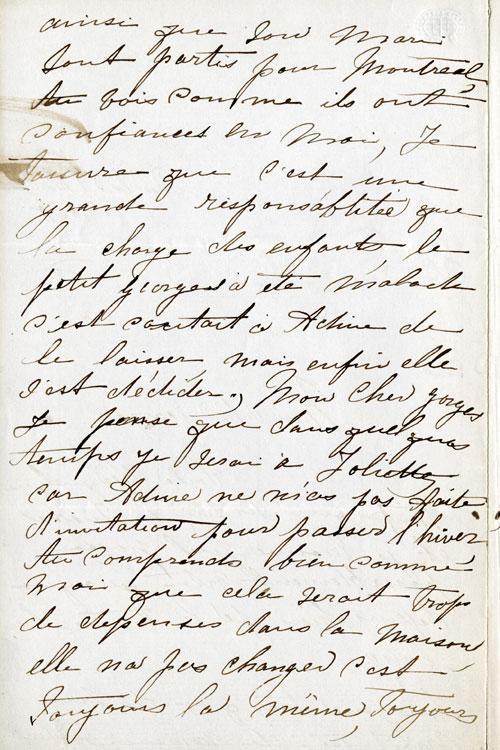 ainsi que son mari
sont partis pour Montreal,
tu vois comme ils ont
confiances en moi, Je
tassure que c'est une
grande responsablitée que
la charge des enfants, le
petit Gorges à été malade
c'est coutait à Adine de
le laisser, mais enfin elle
s'est décidér, Mon Cher gorges
Je pense que dans quelques
temps je serai à Joliette
car Adine ne m'as pas faite
d'invitation pour passer l'hiver
tu comprends bien comme
moi que cela serait trops
de depenses dans la maison,
elle na pas changer c'est
Toujours la même, Toujours